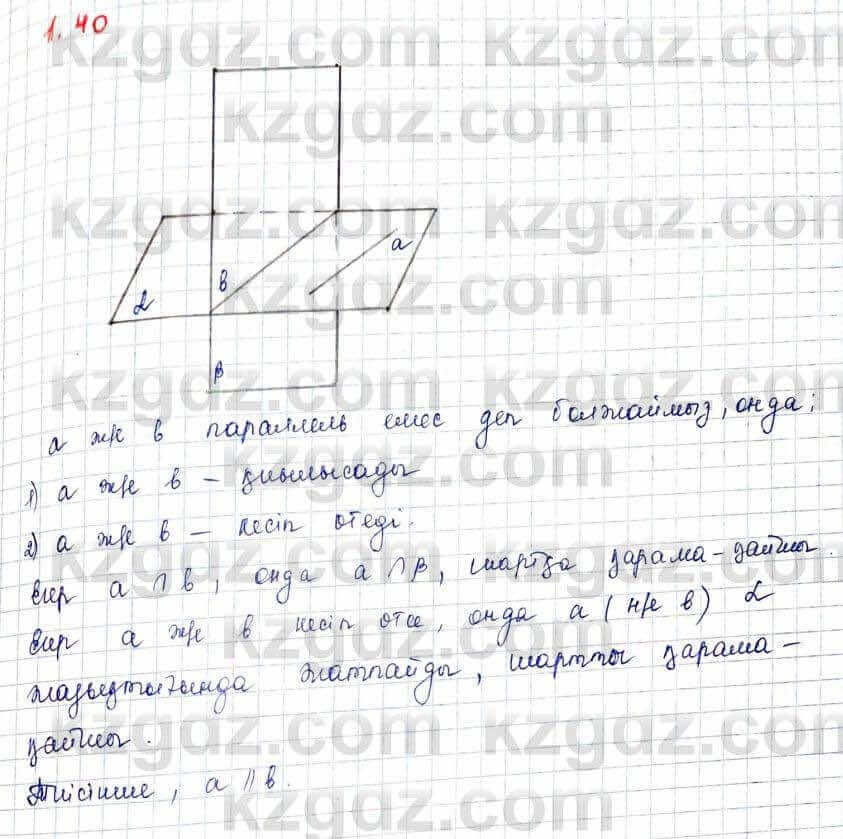 1.40
a
в
α
β
а ж/е в параллель емес деп болжаймыз, онда;
1) а ж/е в – қиылысады
2) а ж/е в – кесіп өтеді.
Егер а ∩ в, онда а ∩ β, шартқа қарама-қайшы.
Егер а ж/е в кесіп өтсе, онда а (н/е в) α
жазықтығында жатпайды, шартты қарама-
қайшы.
Тиісінше, а || в.
kzgdz.com